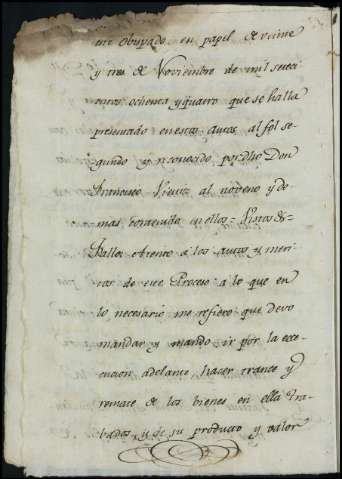 me obligado en papel de veinte
y tres de Noviembre de mil seteci
entos ochenta y quatro que se halla
presentado en estos autos al fol se-
gundo y reconocido por dho Don
Francisco al noveno y de
mas contenido en ellos = Vistos &-
Fallo: atento a los autos y meri-
tos de este Proceso a lo que en
lo necesario me refiero que devo
mandar y mando ir por la exe-
cucion adelante, hacer trance y
remate de los bienes en ella tra-
bados, y de su producto y valor